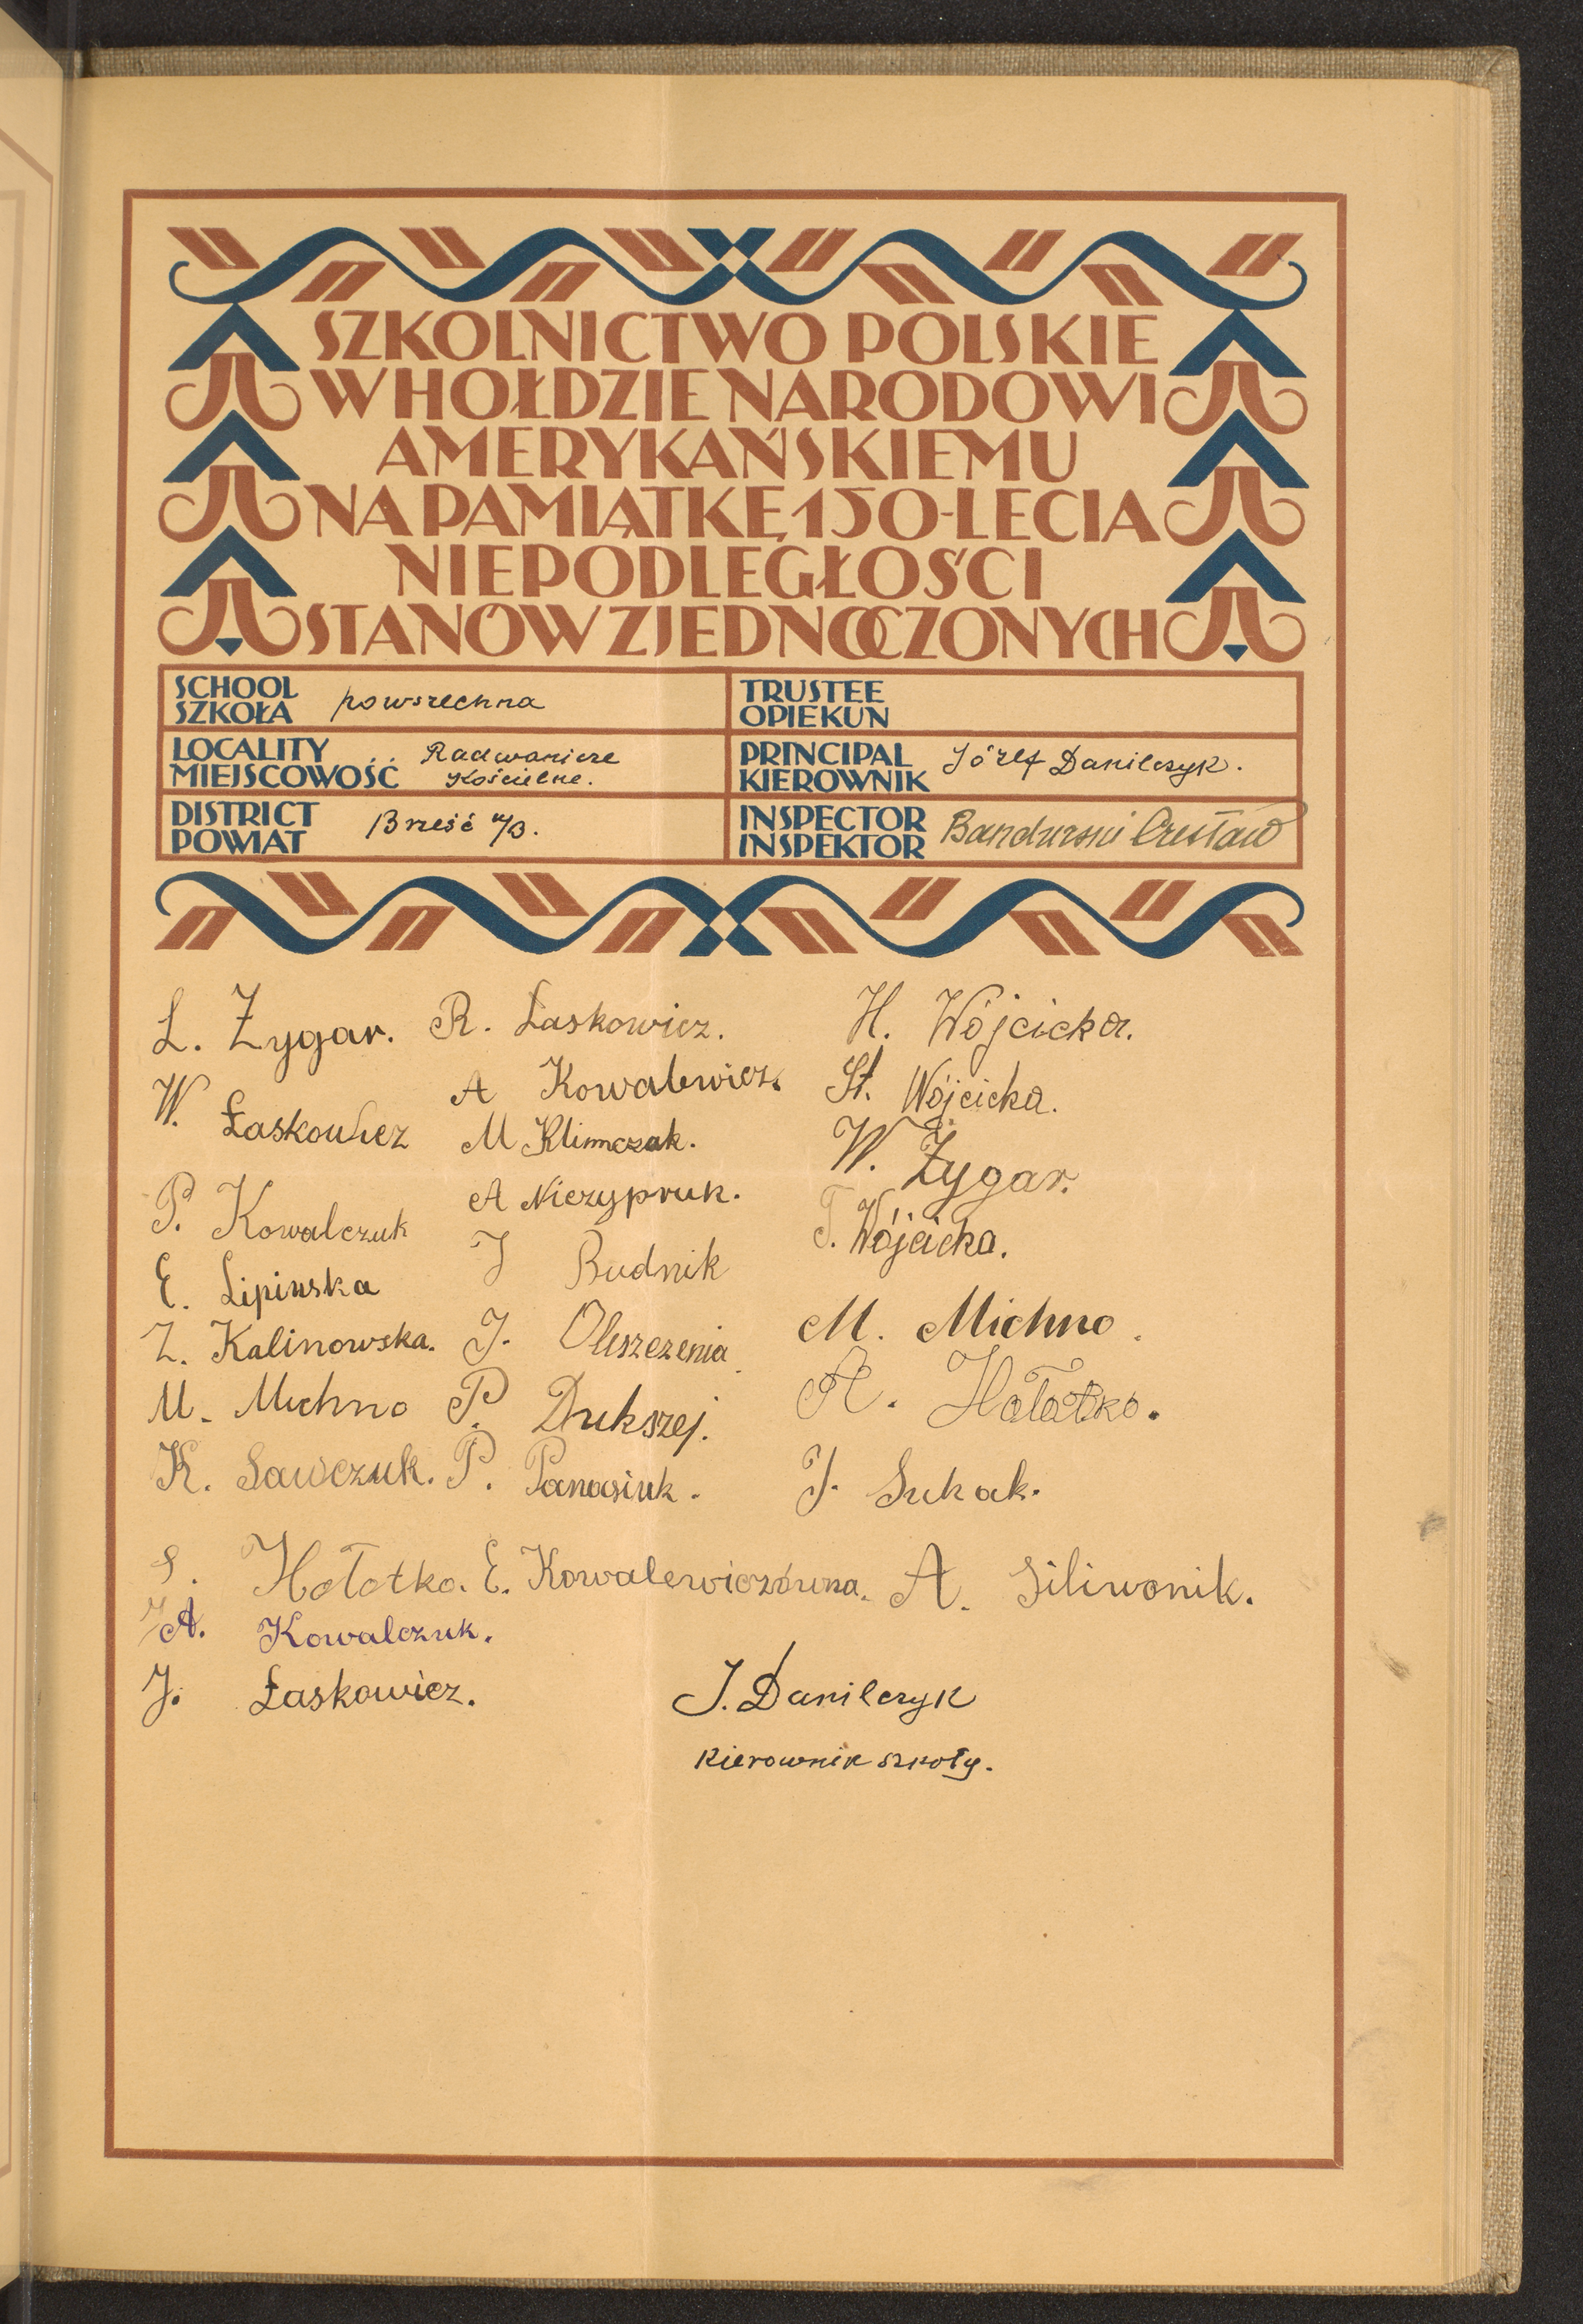 SZKOLNICTWO POLSKIE
W HOŁDZIE NARODOWI
AMERYKAŃSKIEMU
NA PAMIĄTKĘ 150-LECIA
NIEPODLEGŁOŚCI
STANÓW ZJEDNOCZONYCH
SCHOOL
SZKOŁA powszechna
TRUSTEE
OPIEKUN
LOCALITY
MIEJSCOWOŚĆ Radwanicze
Kościelne.
PRINCIPAL
KIEROWNIK Józef Danilczyk.
DISTRICT
POWIAT Brześć n/B.
INSPECTOR
INSPEKTOR Bandurski Czesław
L. Żygar. R. Łaskowicz. H. Wójcicka.
W. Łaskowicz A Kowalewicz. St. Wójcicka.
M Klimczak. W. Żygar.
P. Kowalczuk A Niczypruk. T. Wójcicka.
E. Lipinska J Budnik
Z. Kalinowska. J. Oleszczenia M. Michno.
M. Michno P. Dukszej. A. Hołotko.
K. Sawczuk. P. Panasiuk. J. Sukak.
S. Hołotko. E. Kowalewiczówna. A. Siliwonik.
A. Kowalczuk.
J. Łaskowicz. J. Danilczyk
Kierownik szkoły.